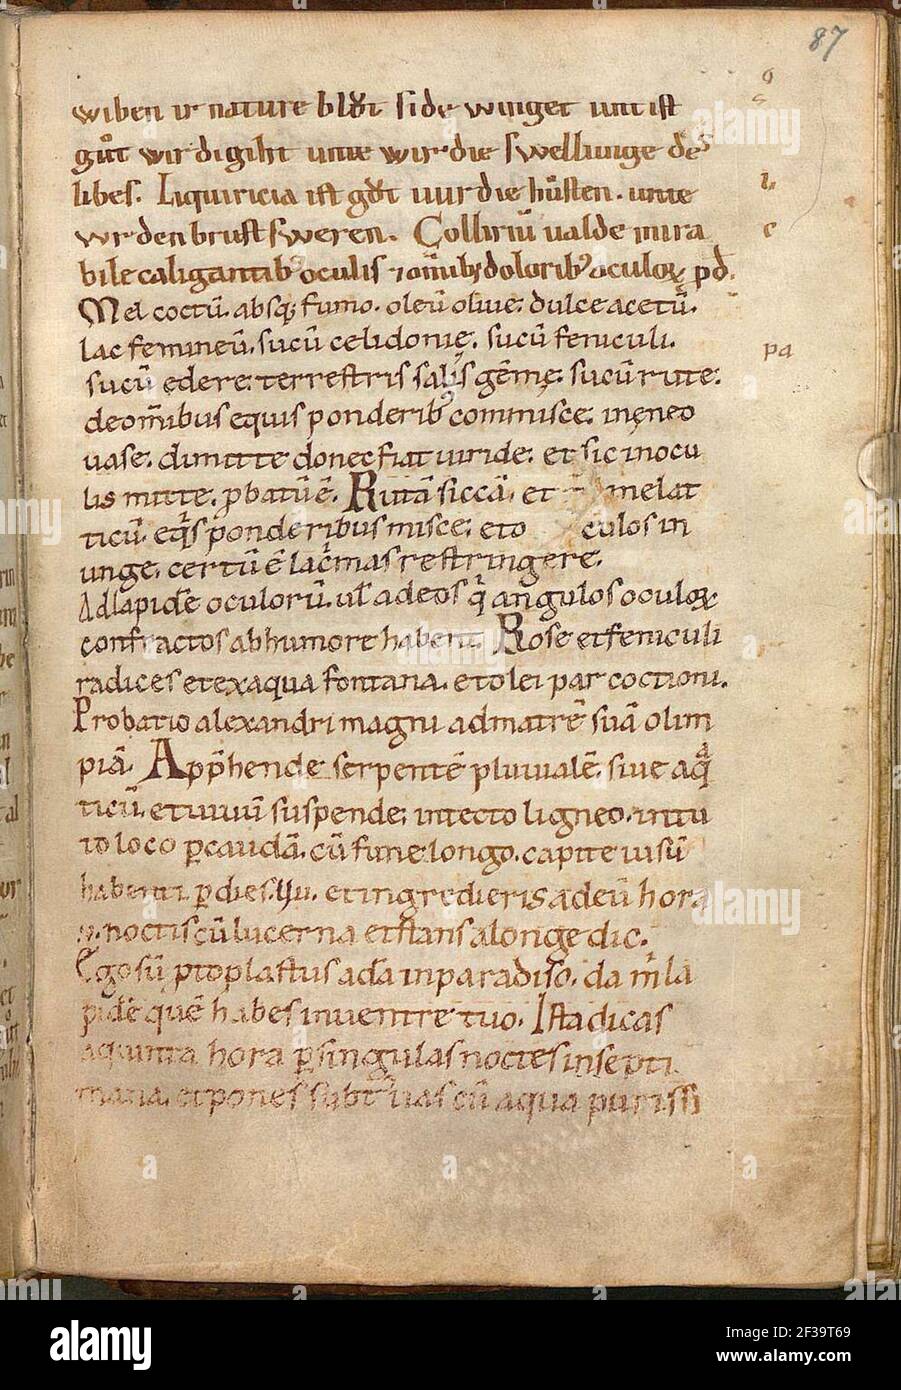 87
wiben ir nature blůt side winget unt ist
gůt wirdigiht unte wirdie swellunge des
libes. Liquiricia ist gůt uurdie hůsten. unte
wrdenbrustsweren. Colliriū ualde mira
bile caligantib᷒ oculis ⁊ om̄ib᷒ doloribus oculoꝝ ꝓd̄.
Mel coctū. absq; fumo. oleū oliue. dulce acetū.
lac femineū. sucū celidonię. sucū feniculi.
sucū edere. terrestris salis gēmę. sucū rute.
deom̄ibus equis ponderib᷒ commisce. in ęneo
uase. dimitte donec fiat uiride. et sic in ocu
lis mitte. ꝓbatū ē. Rutā siccā. et mel at
ticū. eq̄s ponderibus misce. et o culos in
unge. certū ē lacͥmas restringere.
Ad lapidē oculorū. ul̄ ad eos qͥ angulos oculoꝝ
confractos ab humore habent. Rose et feniculi
radices et ex aqua fontana. et olei par coctioni.
Probatio alexandri magni ad matrē suā olim
piā. App̄hende serpentē pluuialē. siue aqͣ
ticū. et uiuū suspende. in tecto ligneo. in tu
to loco ꝑ caudā. cū fune longo. capite uisū
habenti ꝑ dies. et ingredieris ad eū hora
noctis cū lucerna et stans a longe dic.
Ego sū ptoplastus adā in paradiso. da mͥ la
pidē quē habes in uentre tuo. Ista dicas
aquinta hora ꝑ singulas noctes in septi
mana. et pones subt᷒ uas cū aqua purissi
o
s
l.
c
pa
alamy
alamy
alamy
Image ID: 2F39T69
www.alamy.com